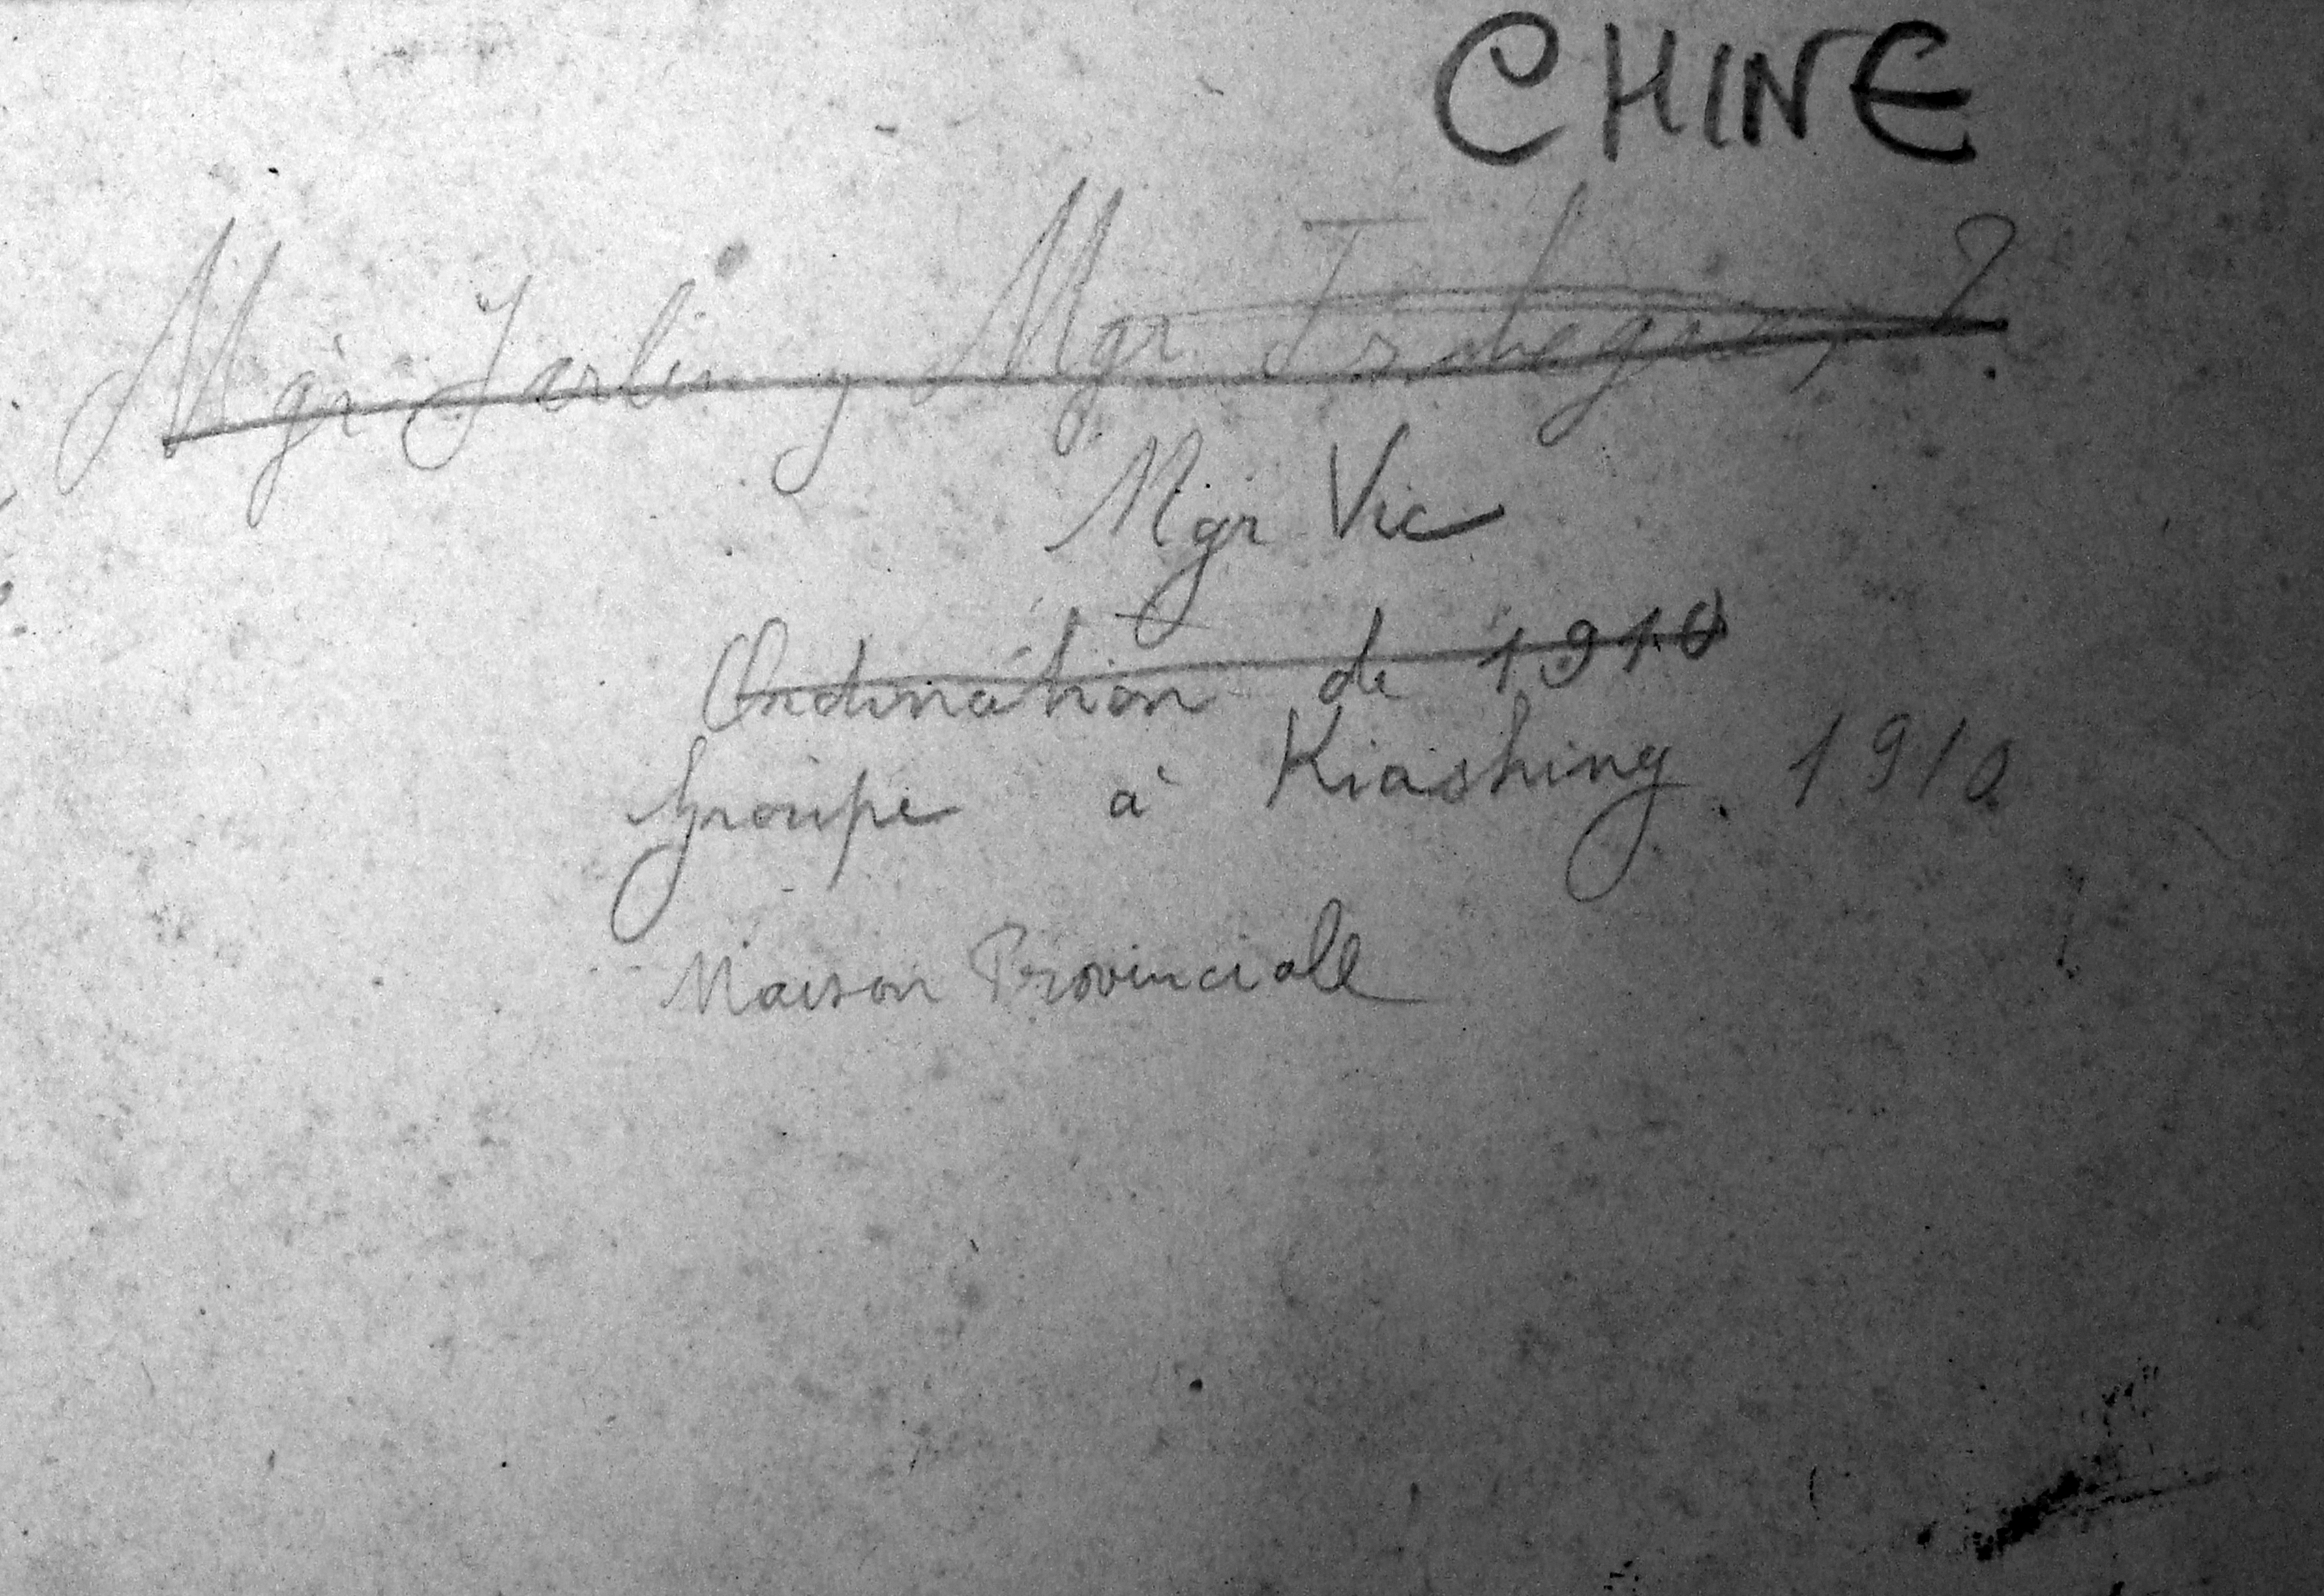 CHINE
Mgr Jarlin, Mgr ?
Mgr Vic
Ordination de 1910
Groupe à Kiashing. 1910
Maison Provinciale